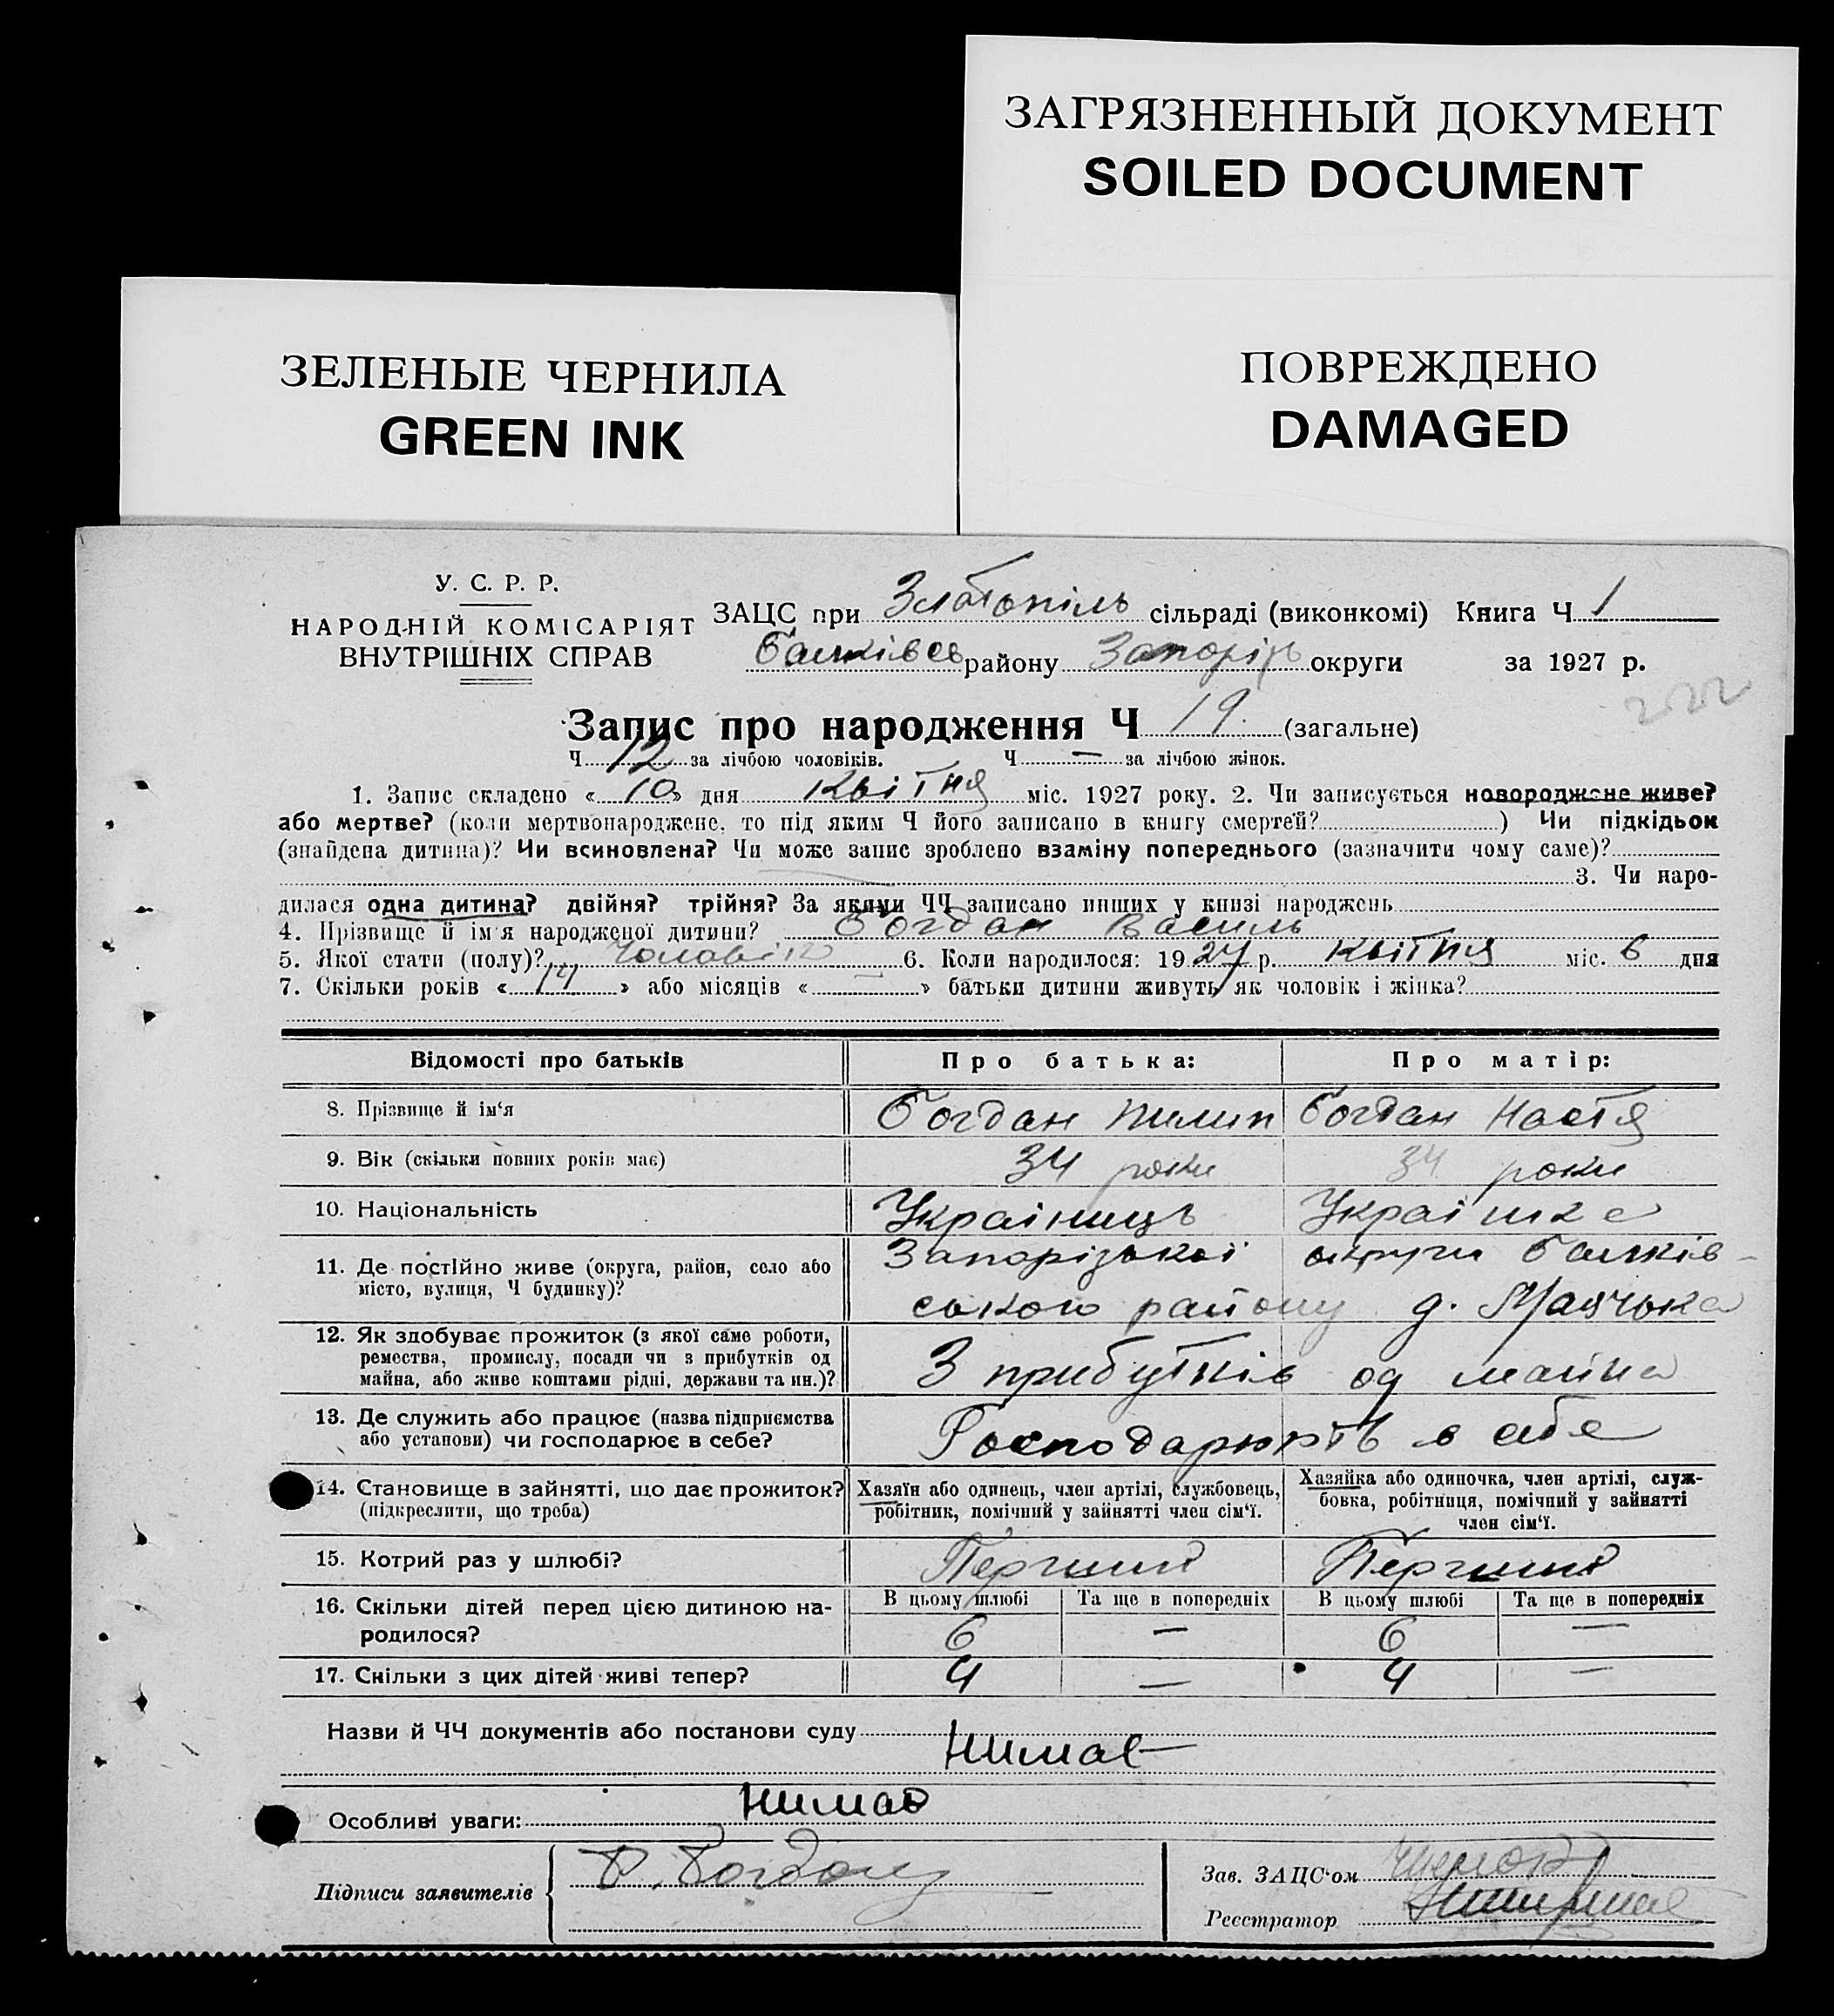 ЗАГРЯЗНЕННЫЙ ДОКУМЕНТ
SOILED DOCUMENT
ПОВРЕЖДЕНО
DAMAGED
ЗЕЛЕНЫЕ ЧЕРНИЛА
GREEN INK
У. С. Р. Р.
НАРОДНІЙ КОМІСАРІЯТ
ВНУТРІШНІХ СПРАВ
ЗАЦС при Златопіль сільраді (виконкомі) Книга Ч. 1
Балківсь району Запоріз округи за 1927 р.
222
Запис про народження Ч 19. (загальне)
Ч. 12 за лічбою чоловіків. Ч. — за лічбою жінок.
1. Запис складено «10» дня Квітня міс. 1927 року. 2. Чи записується новороджене живе?
або мертве? (коли мертвонароджене, то під яким Ч його записано в книгу смертей? ) Чи підкідьок
(знайдена дитина)? Чи всиновлена? Чи може запис зроблено взаміну попереднього (зазначити чому саме)?
3. Чи наро-
дилася одна дитина? двійня? трійня? За якими ЧЧ записано инших у книзі народжень
4. Прізвище й ім'я народженої дитини? Богдан Василь
5. Якої стати (полу)? Чоловік 6. Коли народилося: 1927 р. квітня міс. 6 дня
7. Скільки років «14» або місяців «—» батьки дитини живуть як чоловік і жінка?
Відомості про батьків Про батька: Про матір:
8. Прізвище й ім'я Богдан Пилип Богдан Настя
9. Вік (скільки повних років має) 34 роки 34 роки
10. Національність Українець Українка
11. Де постійно живе (округа, район, село або Запорізької округи Балків-
місто, вулиця, Ч будинку)? ського району д. Маячька
12. Як здобуває прожиток (з якої саме роботи,
ремества, промислу, посади чи з прибутків од З прибутків од майна
майна, або живе коштами рідні, держави та ин.)?
13. Де служить або працює (назва підприємства Господарюють в себе
або установи) чи господарює в себе?
14. Становище в зайнятті, що дає прожиток? Хазяїн або одинець, член артілі, службовець, Хазяйка або одиночка, член артілі, служ-
(підкреслити, що треба) робітник, помічний у зайнятті член сім'ї. бовка, робітниця, помічний у зайнятті
член сім'ї.
15. Котрий раз у шлюбі? Перший Перший
16. Скільки дітей перед цією дитиною на- В цьому шлюбі Та ще в попередніх В цьому шлюбі Та ще в попередніх
родилося? 6 — 6 —
17. Скільки з цих дітей живі тепер? 4 — 4 —
Назви й ЧЧ документів або постанови суду
Нимає
Особливі уваги: Нимає
Підписи заявителів Богдан
Зав. ЗАЦС'ом
Реєстратор